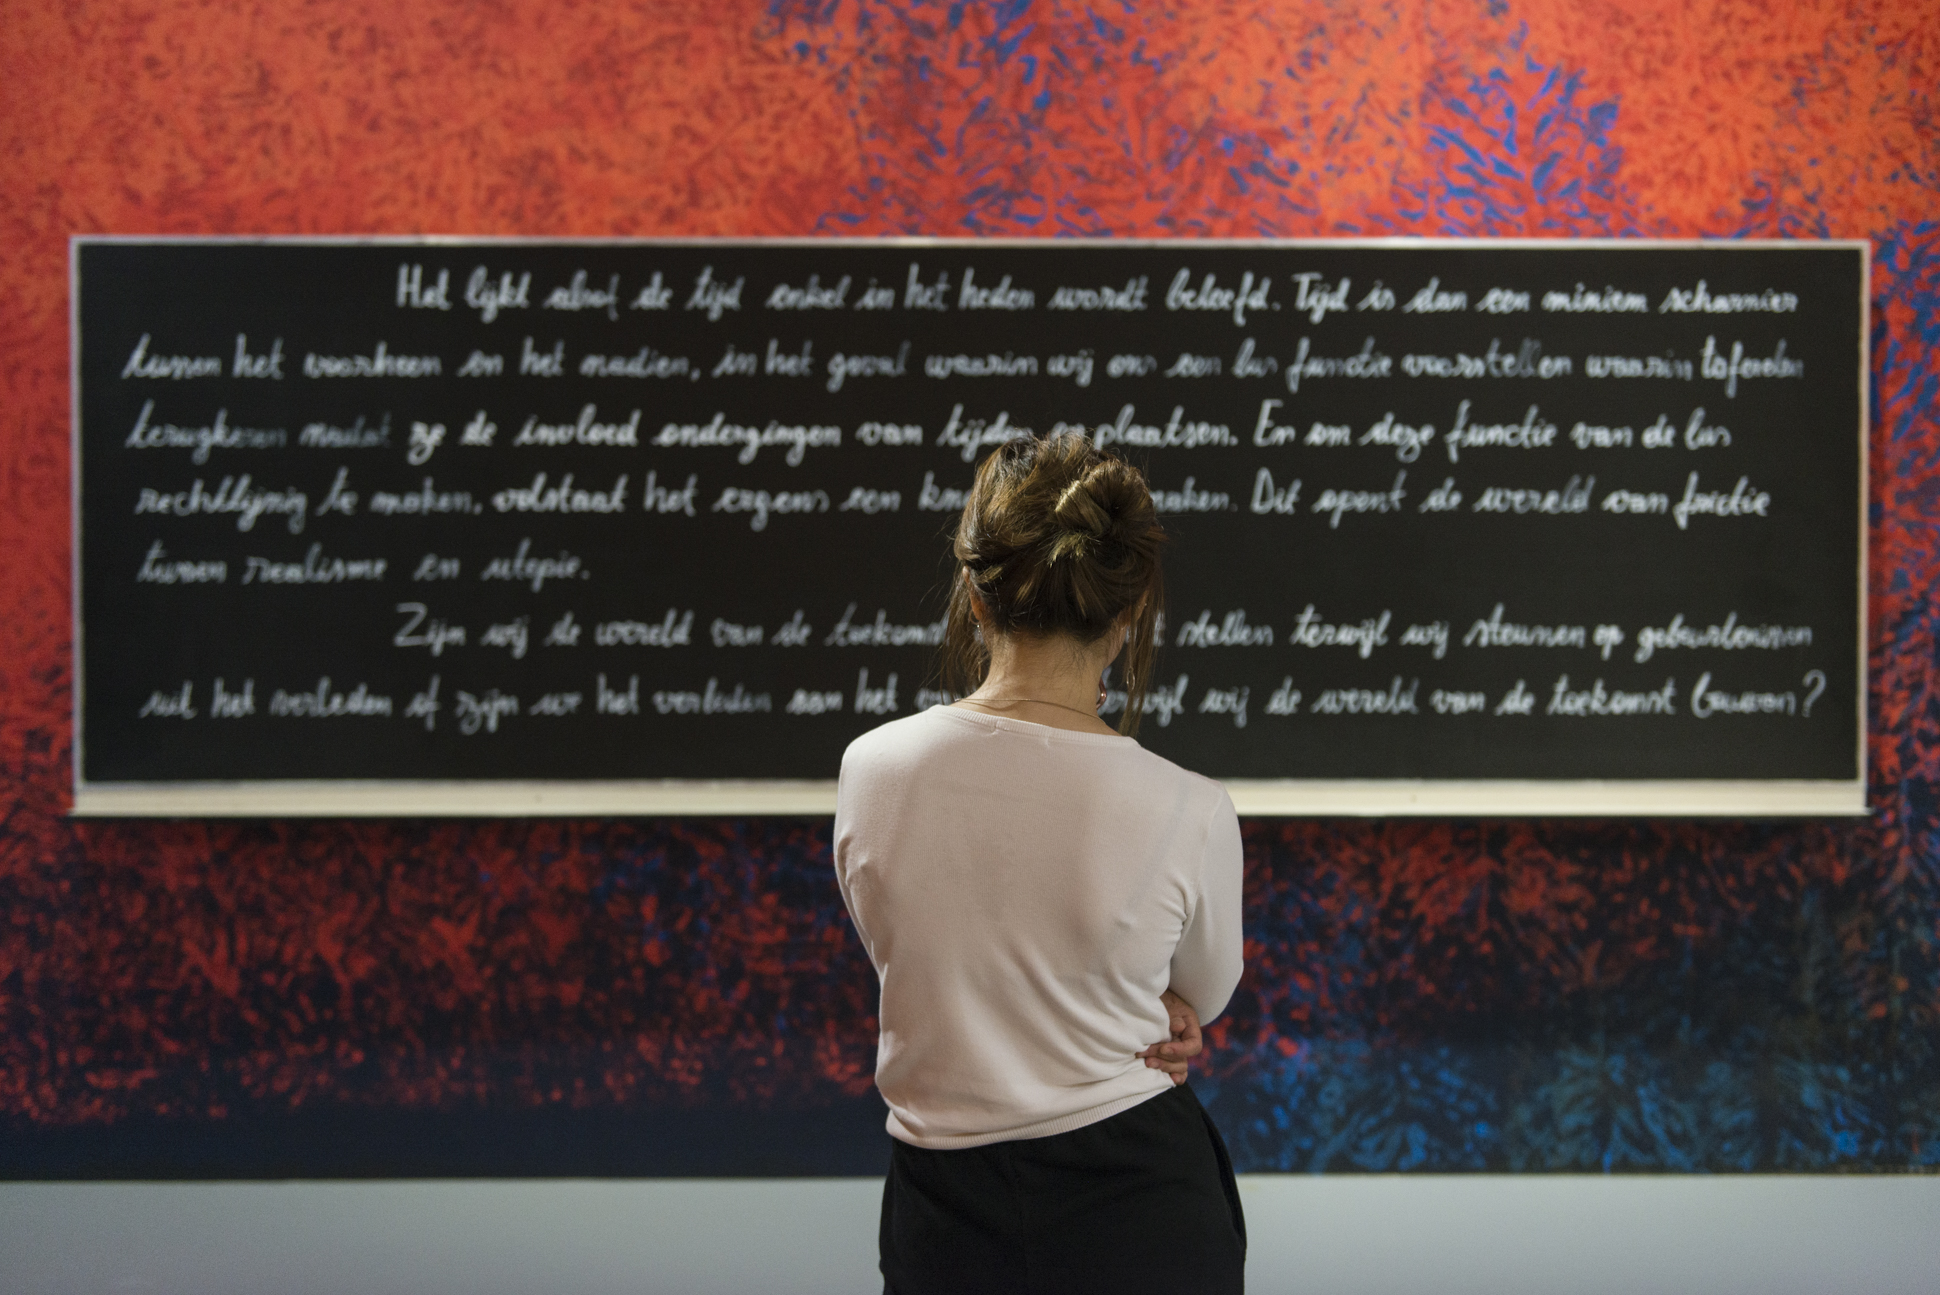 Het lijkt alsof de tijd enkel in het heden wordt beleefd. Tijd is dan een miniem scharnier
tussen het voorheen en het nadien, in het geval waarin wij ons een lus functie voorstellen waarin taferelen
terugkeren nadat ze de invloed ondergingen van tijden en plaatsen. En om deze functie van de lus
rechtlijnig te maken, volstaat het ergens een maken. Dit opent de wereld van frictie
tussen realisme en utopie.
Zijn wij de wereld van de toekomst stellen terwijl wij steunen op gebeurtenissen
uit het verleden of zijn we het verleden aan het terwijl wij de wereld van de toekomst bouwen?